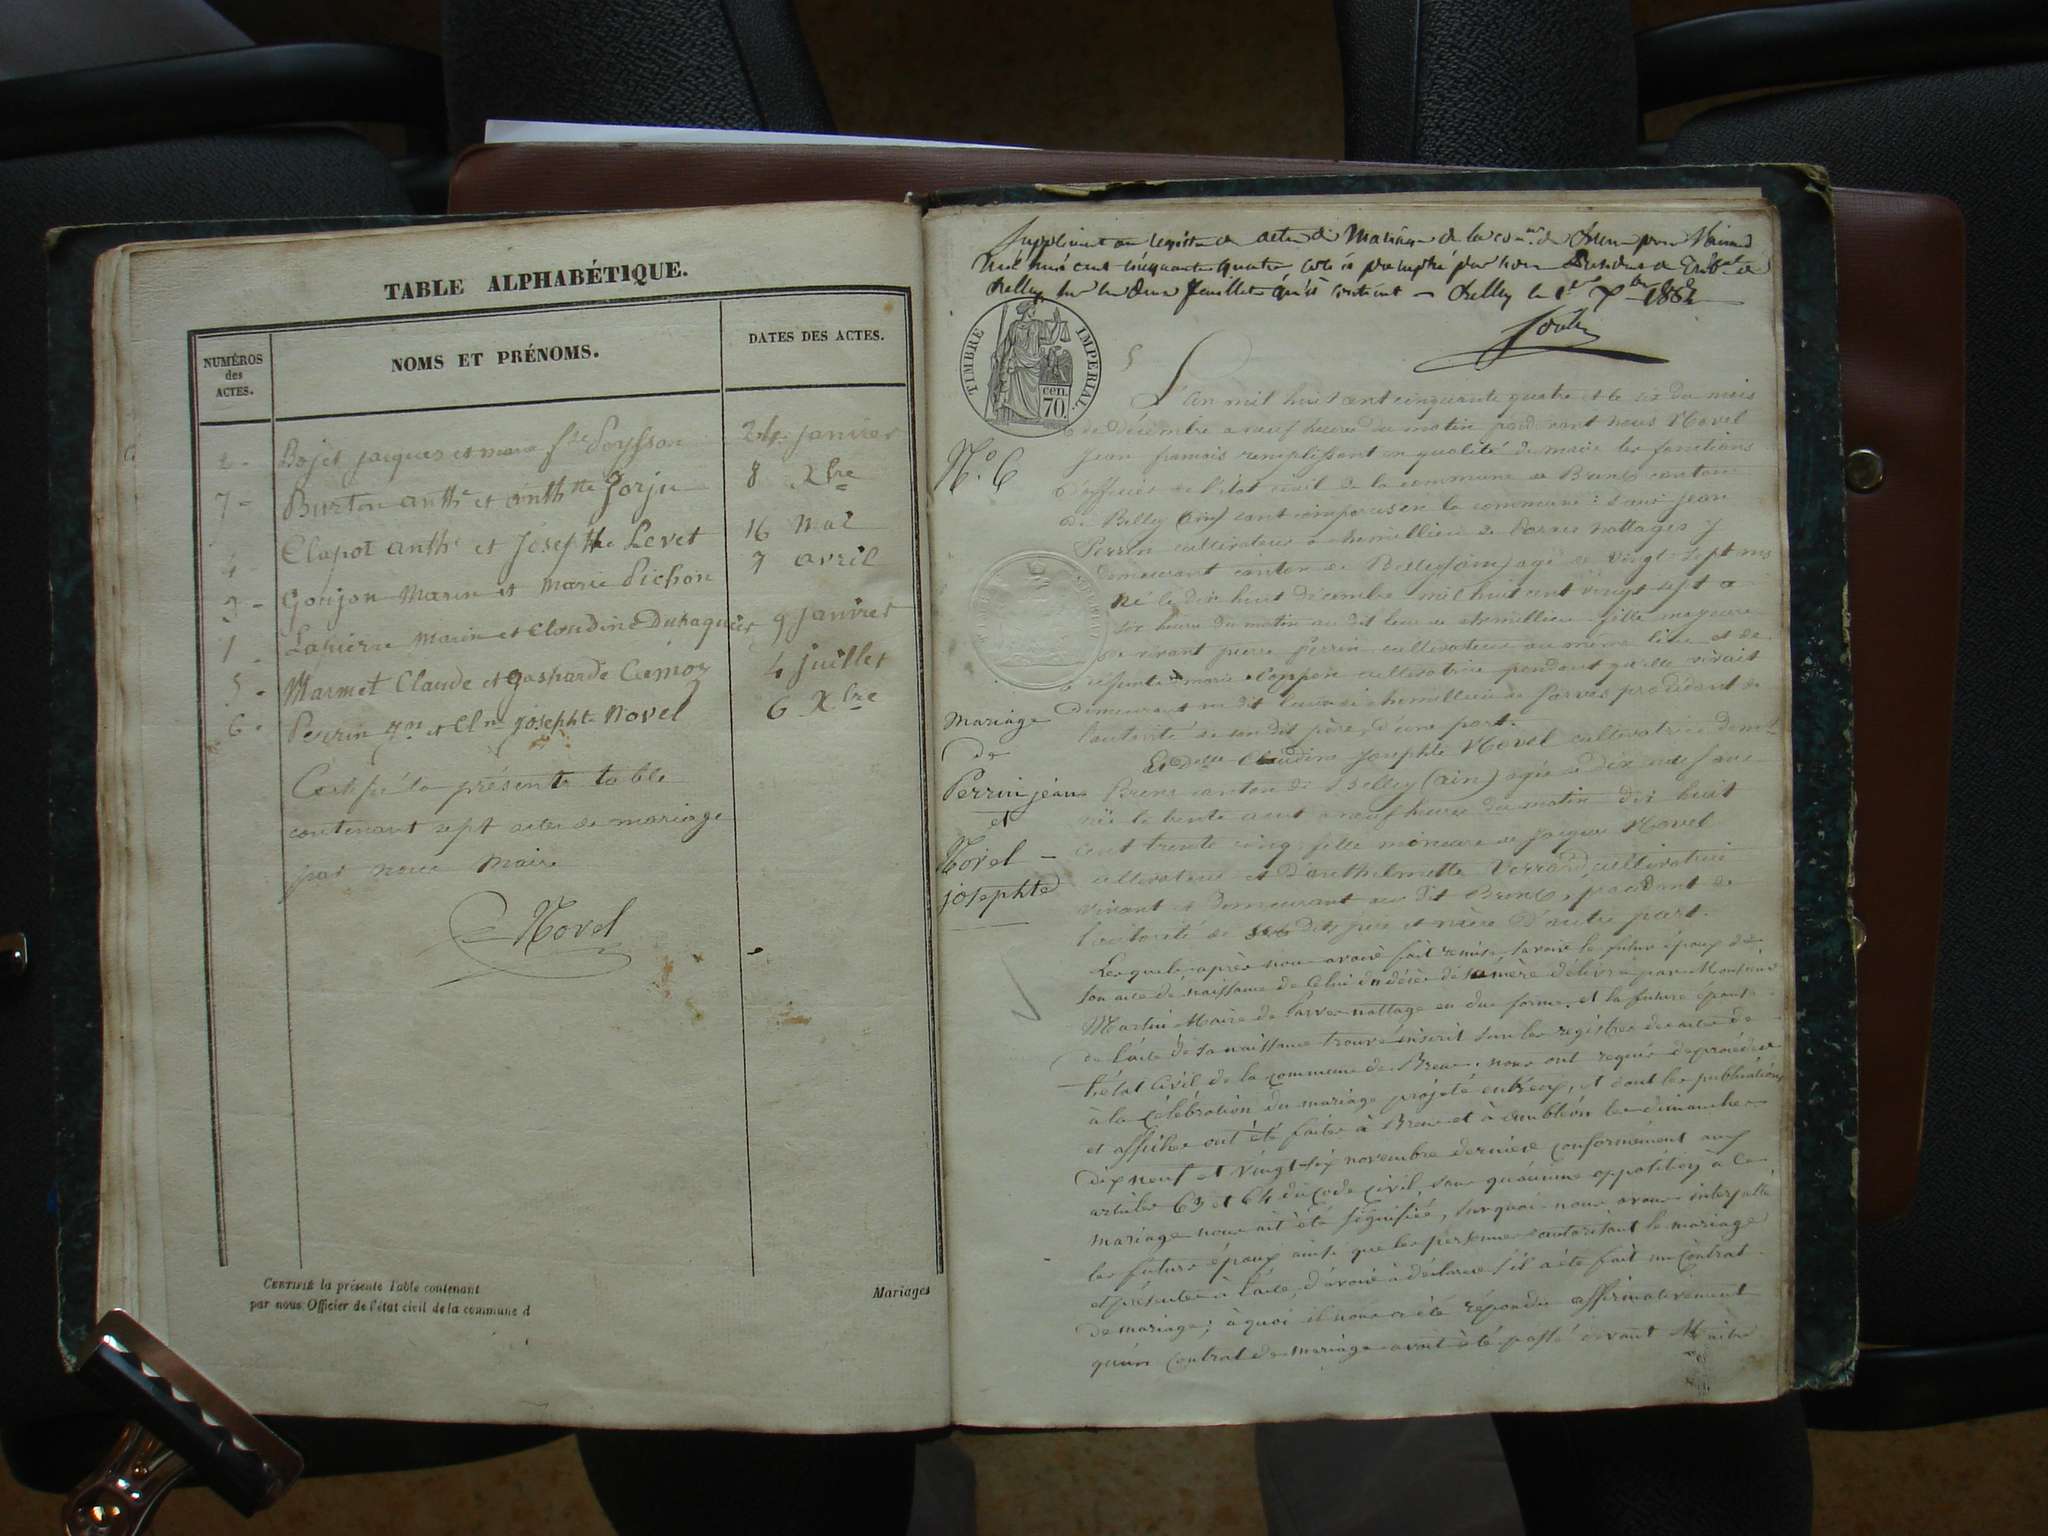 TABLE ALPHABÉTIQUE.
NUMÉROS
des
ACTES.
NOMS ET PRÉNOMS.
DATES DES ACTES.
2 - Bojet jacques et marie Poysson 24 janvier
7 - Burton anthe et anthtte Jorju 8 Xbre
4 - Clapot anthe et Josephte Levet 16 Mai
3 - Goujon Marin et Marie Pichon 7 avril
1 - Lapierre Marin et Claudine Duraquier 9 janvier
5 - Marmet Claude et gasparde Cemoz 4 juillet
6 - Perrin Jn et Cln josephte Novel 6 Xbre
Certifié la présente table
contenant sept actes de mariage
par nous Maire
Novel
CERTIFIÉ la présente Table contenant
par nous, Officier de l'état civil de la commune d
Mariages
Supplément au registre des actes de Mariage de la comne de Brens pour l'année
mil huit cent cinquante quatre, coté et paraphé par nous Président du
Belley sur les deux feuillets qu'il contient - Belley le 1er Xbre 1854
TIMBRE IMPERIAL.
cen.
70.
L'an mil huit cent cinquante quatre et le six du mois
de décembre a neuf heures du matin pardevant nous Novel
jean francois remplissant en qualité de maire les fonctions
d'officier de l'état civil de la commune de Brens canton
de Belley (ain) sont comparus en la commune: sieur jean
Perrin cultivateur a chemillieu de Parves nattages y
demeurant canton de Belley (ain) agé de vingt-sept ans
né le dix huit décembre mil huit cent vingt sept a
six heure du matin au dit lieu de chemillieu fils majeure
de vivant pierre Perrin cultivateur au même lieu et de
défunte marie cultivatrice pendant qu'elle vivait
demeurant au dit lieu de chemillieu de Parves procédant de
l'autorité de son dit père, d'une part.
Et Delle Claudine Josephte Novel cultivatrice demte
Brens canton de Belley (ain) agée de dix neuf ans
née le trente aout a neuf heures du matin dix huit
cent trente cinq fille mineure de Jacques Novel
cultivateur et d'anthelmette Verrard cultivatrice
vivant et demeurant au dit Brens, procédant de
l'autorité de ses dits père et mère d'autre part.
Lesquels après nous avoir fait remise savoir le futur époux de
son acte de naissance de celui du décès de sa mère délivré par Monsieur
Martin Maire de Parves nattage en due forme, et la future épouse
de l'acte de sa naissance trouvé inscrit sur les registres des actes de
l'état civil de la commune de Brens, nous ont requis de procéder
à la célébration du mariage projeté entr'eux, et dont les publications
et affiches ont été faites à Brens et à les dimanches
dix neuf et vingt-six novembre dernière conformément aux
articles 63 et 64 du code civil, sans qu'aucune opposition à ce
mariage nous ait été signifiée, surquoi nous avons interpellé
les futurs époux ainsi que les personnes autorisant le mariage
et présentes à l'acte, d'avoir à déclarer s'il a été fait un contrat
de mariage; à quoi il nous a été répondu affirmativement
qu'un contrat de mariage avait été passé devant Maître
N.° 6
Mariage
de
Perrin jean
et
Novel
josephte